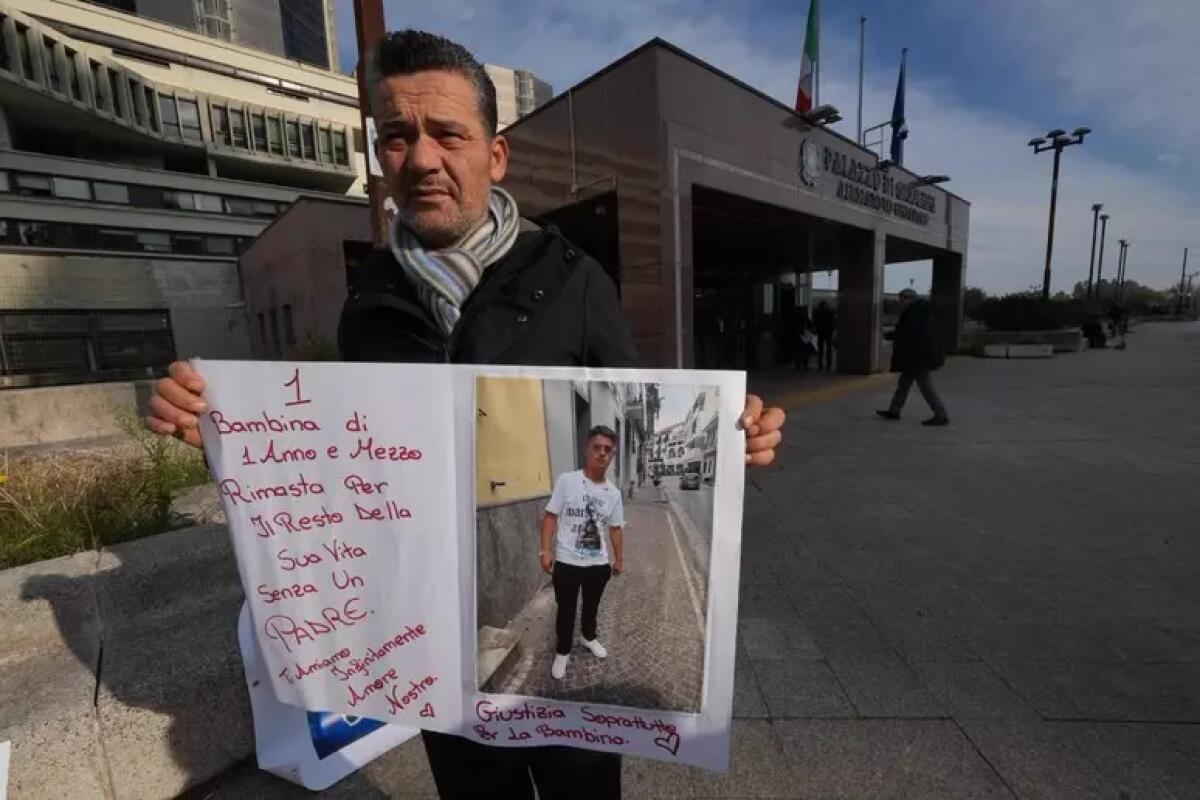 PALAZZO DI GIUSTIZIA
ALESSANDRO CRISCUOLO
1
Bambina di
1 Anno e Mezzo
Rimasta Per
Il Resto Della
Sua Vita
Senza Un
PADRE.
T'Amiamo
Infinitamente
Amore
Nostro.
Giustizia Soprattutto
Per La Bambina.